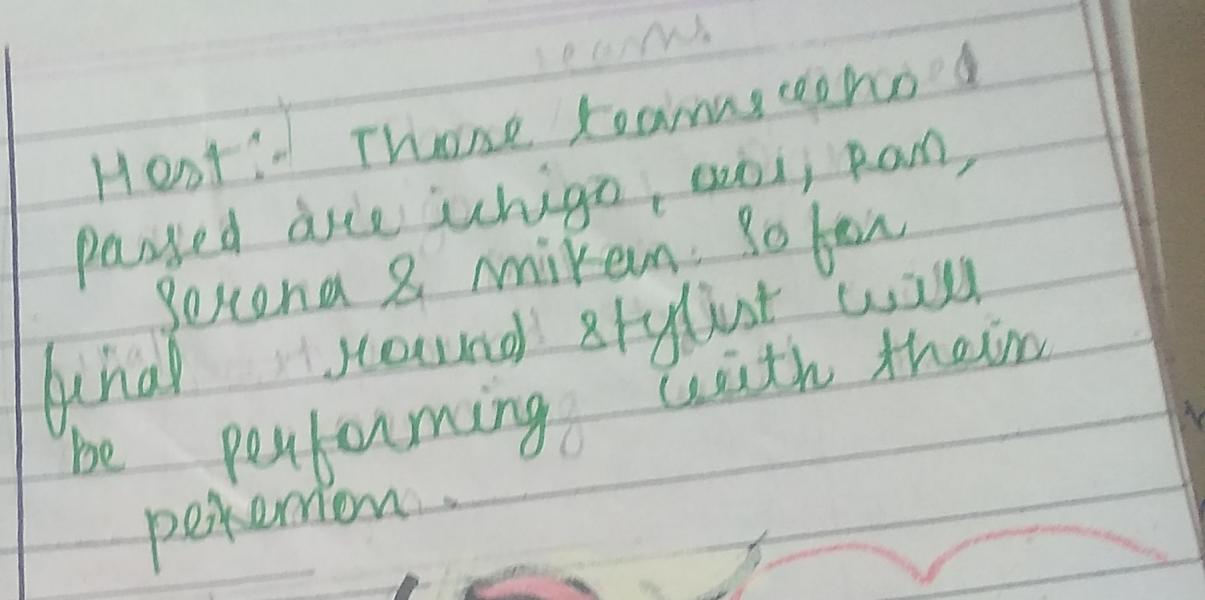 Host:- Those teams who
passed are ichigo, aoi, ran,
Serena & miren. So for
final round stylist will
be performing with their
pokemon.